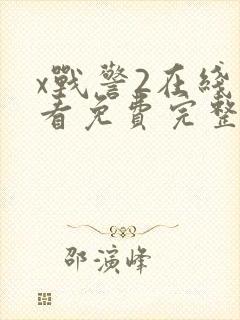 x戰警2在綫
看免費完整
邵演峰